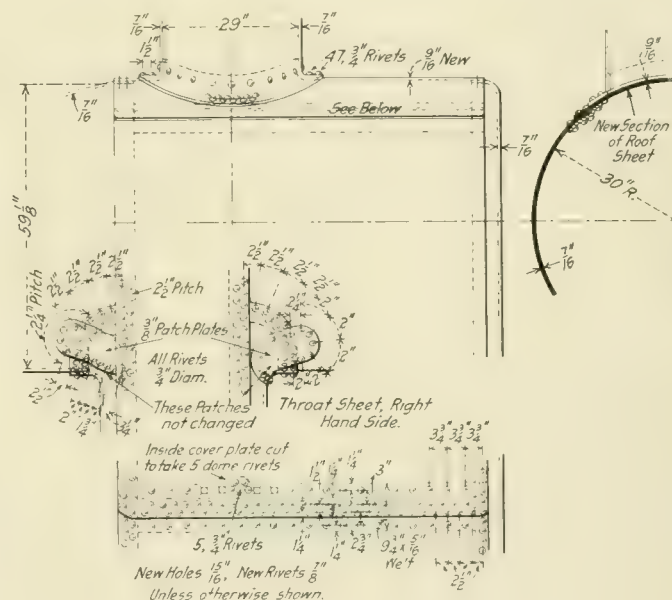 7/16"
29"
7/16"
1 1/2"
47, 3/4" Rivets
9/16" New
9/16"
7/16"
See Below
New Section
of Roof
Sheet
7/16"
30" R.
59 1/8"
7/16"
2 1/2"
2 1/2"
2 1/2"
2 1/2"
2 1/2" Pitch
2 1/4" Pitch
3/8" Patch Plates
All Rivets
3/4" Diam.
2 1/2"
2 1/2"
2 1/2"
2 1/2"
2 1/2"
2 1/4"
2"
2"
2"
2"
These Patches
not changed
Throat Sheet, Right
Hand Side.
2"
1 3/4"
Inside cover plate cut
to take 5 dome rivets
1 1/2"
1 1/4"
1 1/4"
3"
3 3/4"
3 3/4"
3 3/4"
5, 3/4" Rivets
1 1/4"
1 1/4"
2 3/4"
We't
2 1/2"
New Holes 15/16", New Rivets 7/8"
Unless otherwise shown.